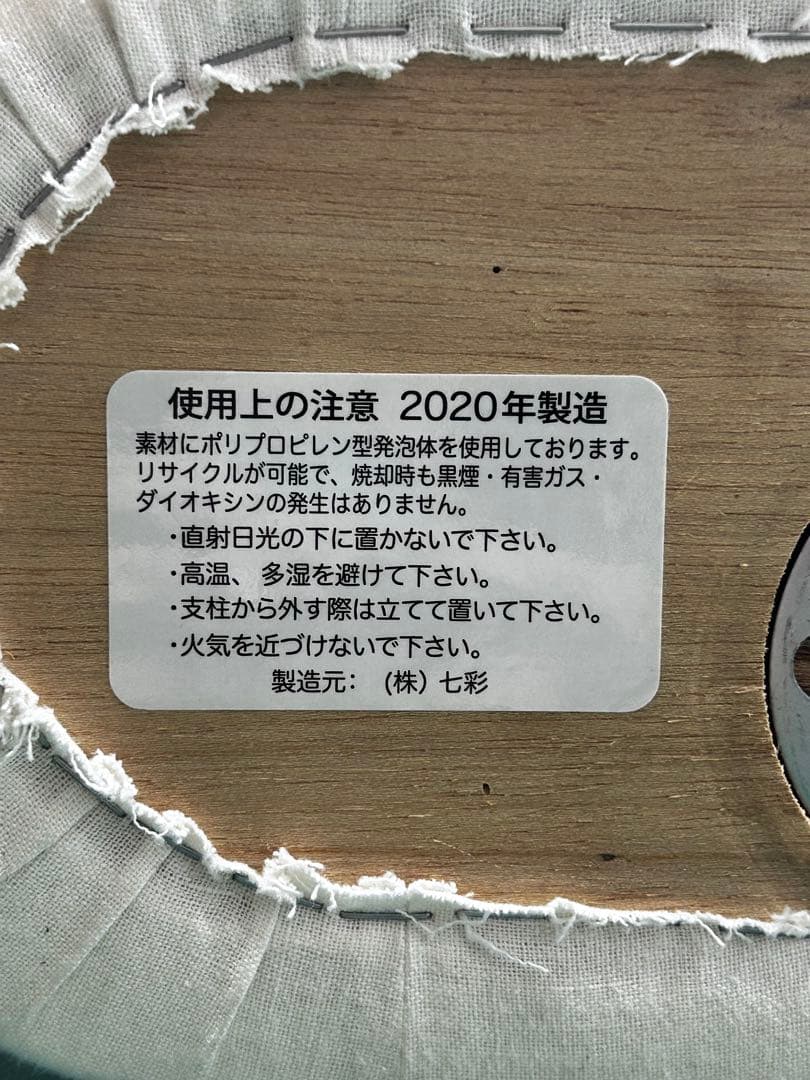 使用上の注意 2020年製造
素材にポリプロピレン型発泡体を使用しております。
リサイクルが可能で、焼却時も黒煙・有害ガス・
ダイオキシンの発生はありません。
・直射日光の下に置かないで下さい。
・高温、多湿を避けて下さい。
・支柱から外す際は立てて置いて下さい。
・火気を近づけないで下さい。
製造元: (株) 七彩